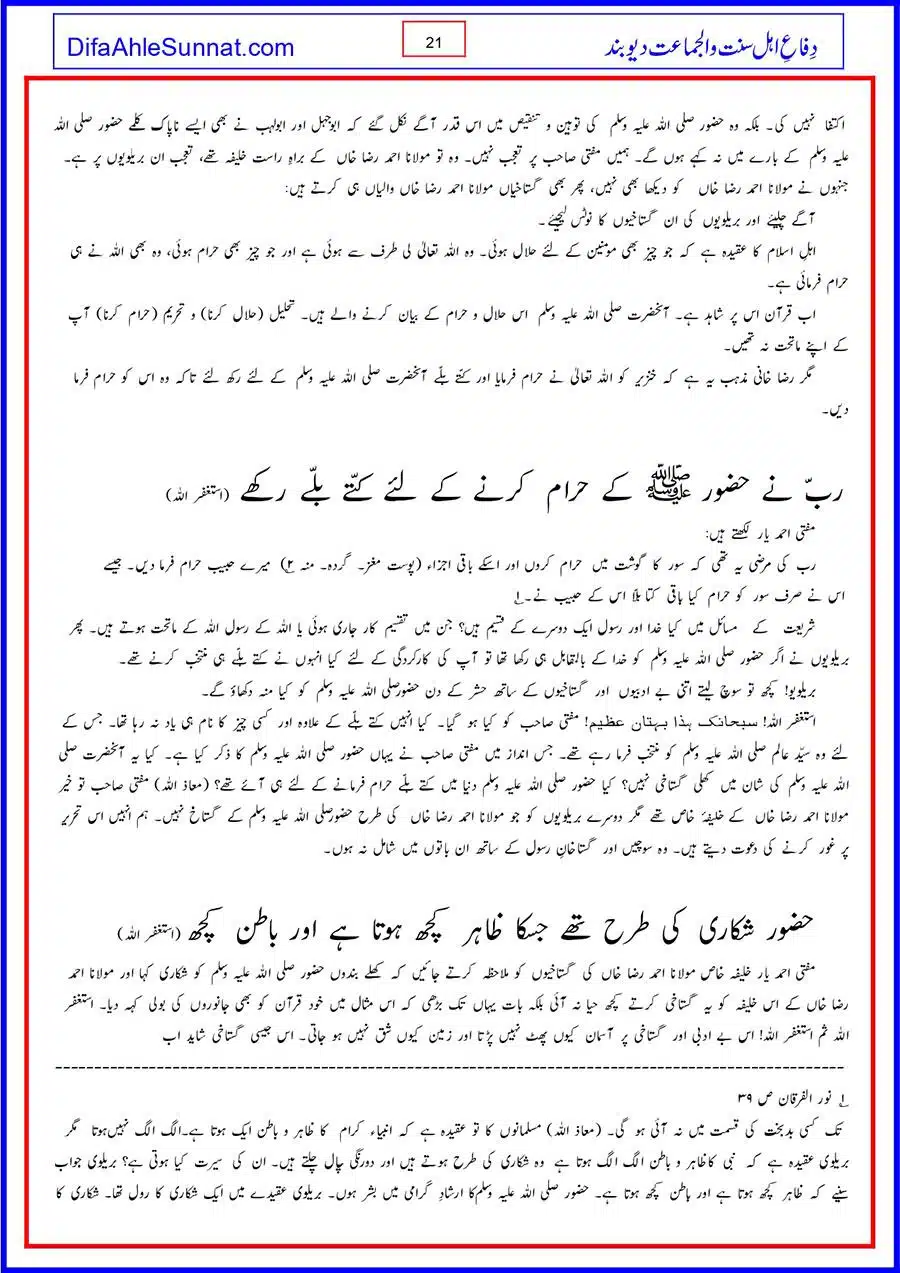 DifaAhleSunnat.com
21
دِفاعِ اہل سنت والجماعت دیوبند
اکتفا نہیں کی۔ بلکہ وہ حضور صلی اللہ علیہ وسلم کی توہین و تنقیص میں اس قدر آگے نکل گئے کہ ابوجہل اور ابولہب نے بھی ایسے ناپاک کلمے حضور صلی اللہ
علیہ وسلم کے بارے میں نہ کہے ہوں گے۔ ہمیں مفتی صاحب پر تعجب نہیں۔ وہ تو مولانا احمد رضا خاں کے براہِ راست خلیفہ تھے، تعجب ان بریلویوں پر ہے۔
جنہوں نے مولانا احمد رضا خاں کو دیکھا بھی نہیں، پھر بھی گستاخیاں مولانا احمد رضا خاں والیاں ہی کرتے ہیں:
آگے چلیئے اور بریلویوں کی ان گستاخیوں کا نوٹس لیجئیے۔
اہلِ اسلام کا عقیدہ ہے کہ جو چیز بھی مومنین کے لئے حلال ہوئی۔ وہ اللہ تعالیٰ لی طرف سے ہوئی ہے اور جو چیز بھی حرام ہوئی، وہ بھی اللہ نے ہی
حرام فرمائی ہے۔
اب قرآن اس پر شاہد ہے۔ آنحضرت صلی اللہ علیہ وسلم اس حلال و حرام کے بیان کرنے والے ہیں۔ تحلیل (حلال کرنا) و تحریم (حرام کرنا) آپ
کے اپنے ماتحت نہ تھیں۔
مگر رضا خانی مذہب یہ ہے کہ خنزیر کو اللہ تعالیٰ نے حرام فرمایا اور کتے بلے آنحضرت صلی اللہ علیہ وسلم کے لئے رکھ لئے تاکہ وہ اس کو حرام فرما
دیں۔
ربّ نے حضور ﷺ کے حرام کرنے کے لئے کتّے بلّے رکھے (استغفر اللہ)
مفتی احمد یار لکھتے ہیں:
رب کی مرضی یہ تھی کہ سور کا گوشت میں حرام کروں اور اسکے باقی اجزاء (پوست مغز۔ گردہ۔ منہ ۲) میرے حبیب حرام فرما دیں۔ جیسے
اس نے صرف سور کو حرام کیا باقی کتا بلا اس کے حبیب نے۔۱؎
شریعت کے مسائل میں کیا خدا اور رسول ایک دوسرے کے قسیم ہیں؟ جن میں تقسیم کار جاری ہوئی یا اللہ کے رسول اللہ کے ماتحت ہوتے ہیں۔ پھر
بریلویوں نے اگر حضور صلی اللہ علیہ وسلم کو خدا کے بالمقابل ہی رکھا تھا تو آپ کی کارکردگی کے لئے کیا انہوں نے کتے بلے ہی منتخب کرنے تھے۔
بریلویو! کچھ تو سوچ لیتے اتنی بے ادبیوں اور گستاخیوں کے ساتھ حشر کے دن حضورصلی اللہ علیہ وسلم کو کیا منہ دکھاؤ گے۔
استغفر اللہ! سبحانک ہذا بہتان عظیم! مفتی صاحب کو کیا ہو گیا۔ کیا انہیں کتے بلّے کے علاوہ اور کسی چیز کا نام ہی یاد نہ رہا تھا۔ جس کے
لئے وہ سیّد عالم صلی اللہ علیہ وسلم کو منتخب فرما رہے تھے۔ جس انداز میں مفتی صاحب نے یہاں حضور صلی اللہ علیہ وسلم کا ذکر کیا ہے۔ کیا یہ آنحضرت صلی
اللہ علیہ وسلم کی شان میں کھلی گستاخی نہیں؟ کیا حضور صلی اللہ علیہ وسلم دنیا میں کتے بلّے حرام فرمانے کے لئے ہی آئے تھے؟ (معاذ اللہ) مفتی صاحب تو خیر
مولانا احمد رضا خاں کے خلیفۂ خاص تھے مگر دوسرے بریلویوں کو جو مولانا احمد رضا خاں کی طرح حضورصلی اللہ علیہ وسلم کے گستاخ نہیں۔ ہم انہیں اس تحریر
پر غور کرنے کی دعوت دیتے ہیں۔ وہ سوچیں اور گستاخانِ رسول کے ساتھ ان باتوں میں شامل نہ ہوں۔
حضور شکاری کی طرح تھے جسکا ظاہر کچھ ہوتا ہے اور باطن کچھ (استغفر اللہ)
مفتی احمد یار خلیفہ خاص مولانا احمد رضا خاں کی گستاخیوں کو ملاحظہ کرتے جائیں کہ کھلے بندوں حضور صلی اللہ علیہ وسلم کو شکاری کہا اور مولانا احمد
رضا خاں کے اس خلیفہ کو یہ گستاخی کرتے کچھ حیا نہ آئی بلکہ بات یہاں تک بڑھی کہ اس مثال میں خود قرآن کو بھی جانوروں کی بولی کہہ دیا۔ استغفر
اللہ ثم استغفر اللہ! اس بے ادبی اور گستاخی پر آسمان کیوں پھٹ نہیں پڑتا اور زمین کیوں شق نہیں ہو جاتی۔ اس جیسی گستاخی شاید اب
۱؎ نور الفرقان ص ۳۹
تک کسی بدبخت کی قسمت میں نہ آئی ہو گی۔ (معاذ اللہ) مسلمانوں کا تو عقیدہ ہے کہ انبیاء کرام کا ظاہر و باطن ایک ہوتا ہے۔الگ الگ نہیں‌ہوتا مگر
بریلوی عقیدہ ہے کہ نبی کاظاہر و باطن الگ الگ ہوتا ہے وہ شکاری کی طرح ہوتے ہیں اور دورنگی چال چلتے ہیں۔ ان کی سیرت کیا ہوتی ہے؟ بریلوی جواب
سنیے کہ ظاہر کچھ ہوتا ہے اور باطن کچھ ہوتا ہے۔ حضور صلی اللہ علیہ وسلم‌کا ارشادِ گرامی میں بشر ہوں۔ بریلوی عقیدے میں ایک شکاری کا رول تھا۔ شکاری کا